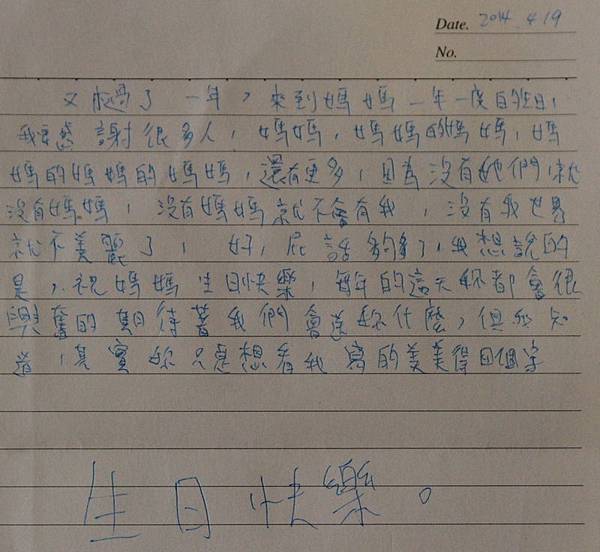 Date. 2014.4.19
No.
又過了一年，來到媽媽一年一度的生日，
我要感謝很多人，媽媽，媽媽的媽媽，媽
媽的媽媽的媽媽，還有更多，因為沒有她們，就
沒有媽媽，沒有媽媽就不會有我，沒有我世界
就不美麗了，好，屁話夠多了，我想說的
是，祝媽媽生日快樂，每年的這天妳都會很
興奮的期待著我們會送妳什麼，但我知
道，其實妳只是想看我寫的美美得四個字
生日快樂。